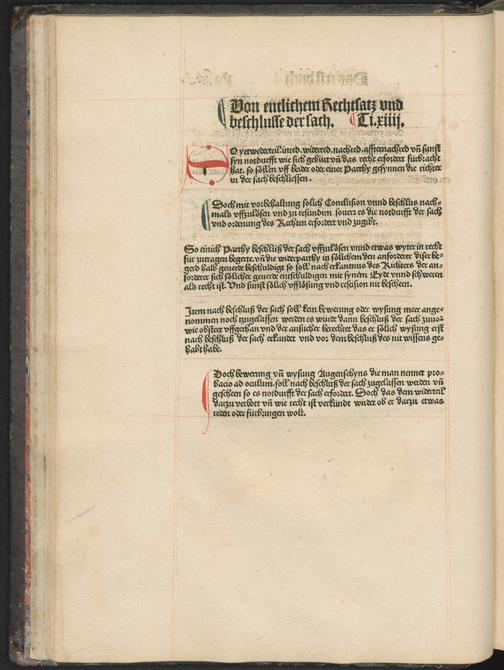 Von entlichem Rechtsatz vnd
beschlusse der sach. Ti.xiiij.
SO yetweder teil in red. widerred. nachred. affternachred vñ sunst
syn notdurfft wie sich gebürt vñ das recht erfordert fürbracht
hat. so söllen vff beider oder einer Parthy gesynnen die richter
in der sach beschliessen.
Doch mit vorbehaltung solich Conclusion vnnd beschlus nach-
mals vffzulösen vnd zu rescindirn souerr es die notdurfft der sach
vnd ordenung des Rechten erfordert vnd zugibt.
So einich Parthy beschluß der sach vffzulösen vnnd etwas wyter in recht
für zutragen begerte. vñ die widerparthy in sölichem den anforderer diser be-
gerd halb geuerde beschuldigt so soll nach erkantnus des Richters der an-
forderer sich sölicher geuerde entschuldigen mit synem Eyde vnnd schweren
als recht ist. Vnd sunst sölich vfflösung vnd rescision nit bescheen.
Item nach beschluß der sach soll kein bewerung oder wysung meer ange-
nommen noch zugelassen werden es würde dann beschluß der sach zuuor
wie obsteet vffgethan vnd der ansücher berechtet das er sölich wysung erst
nach beschluß der sach erkundet vnd vor dem beschluß des nit wissens ge-
habt habe.
Doch bewerung vñ wysung Augenschyns die man nennet pro-
bacio ad oculum. soll nach beschluß der sach zugelassen werden vñ
gescheen so es notdurfft der sach erfordert. Doch das dem widerteil
darzu verbott vñ wie recht ist verkündt wurde ob er darzu etwas
reden oder fürbringen wolt.